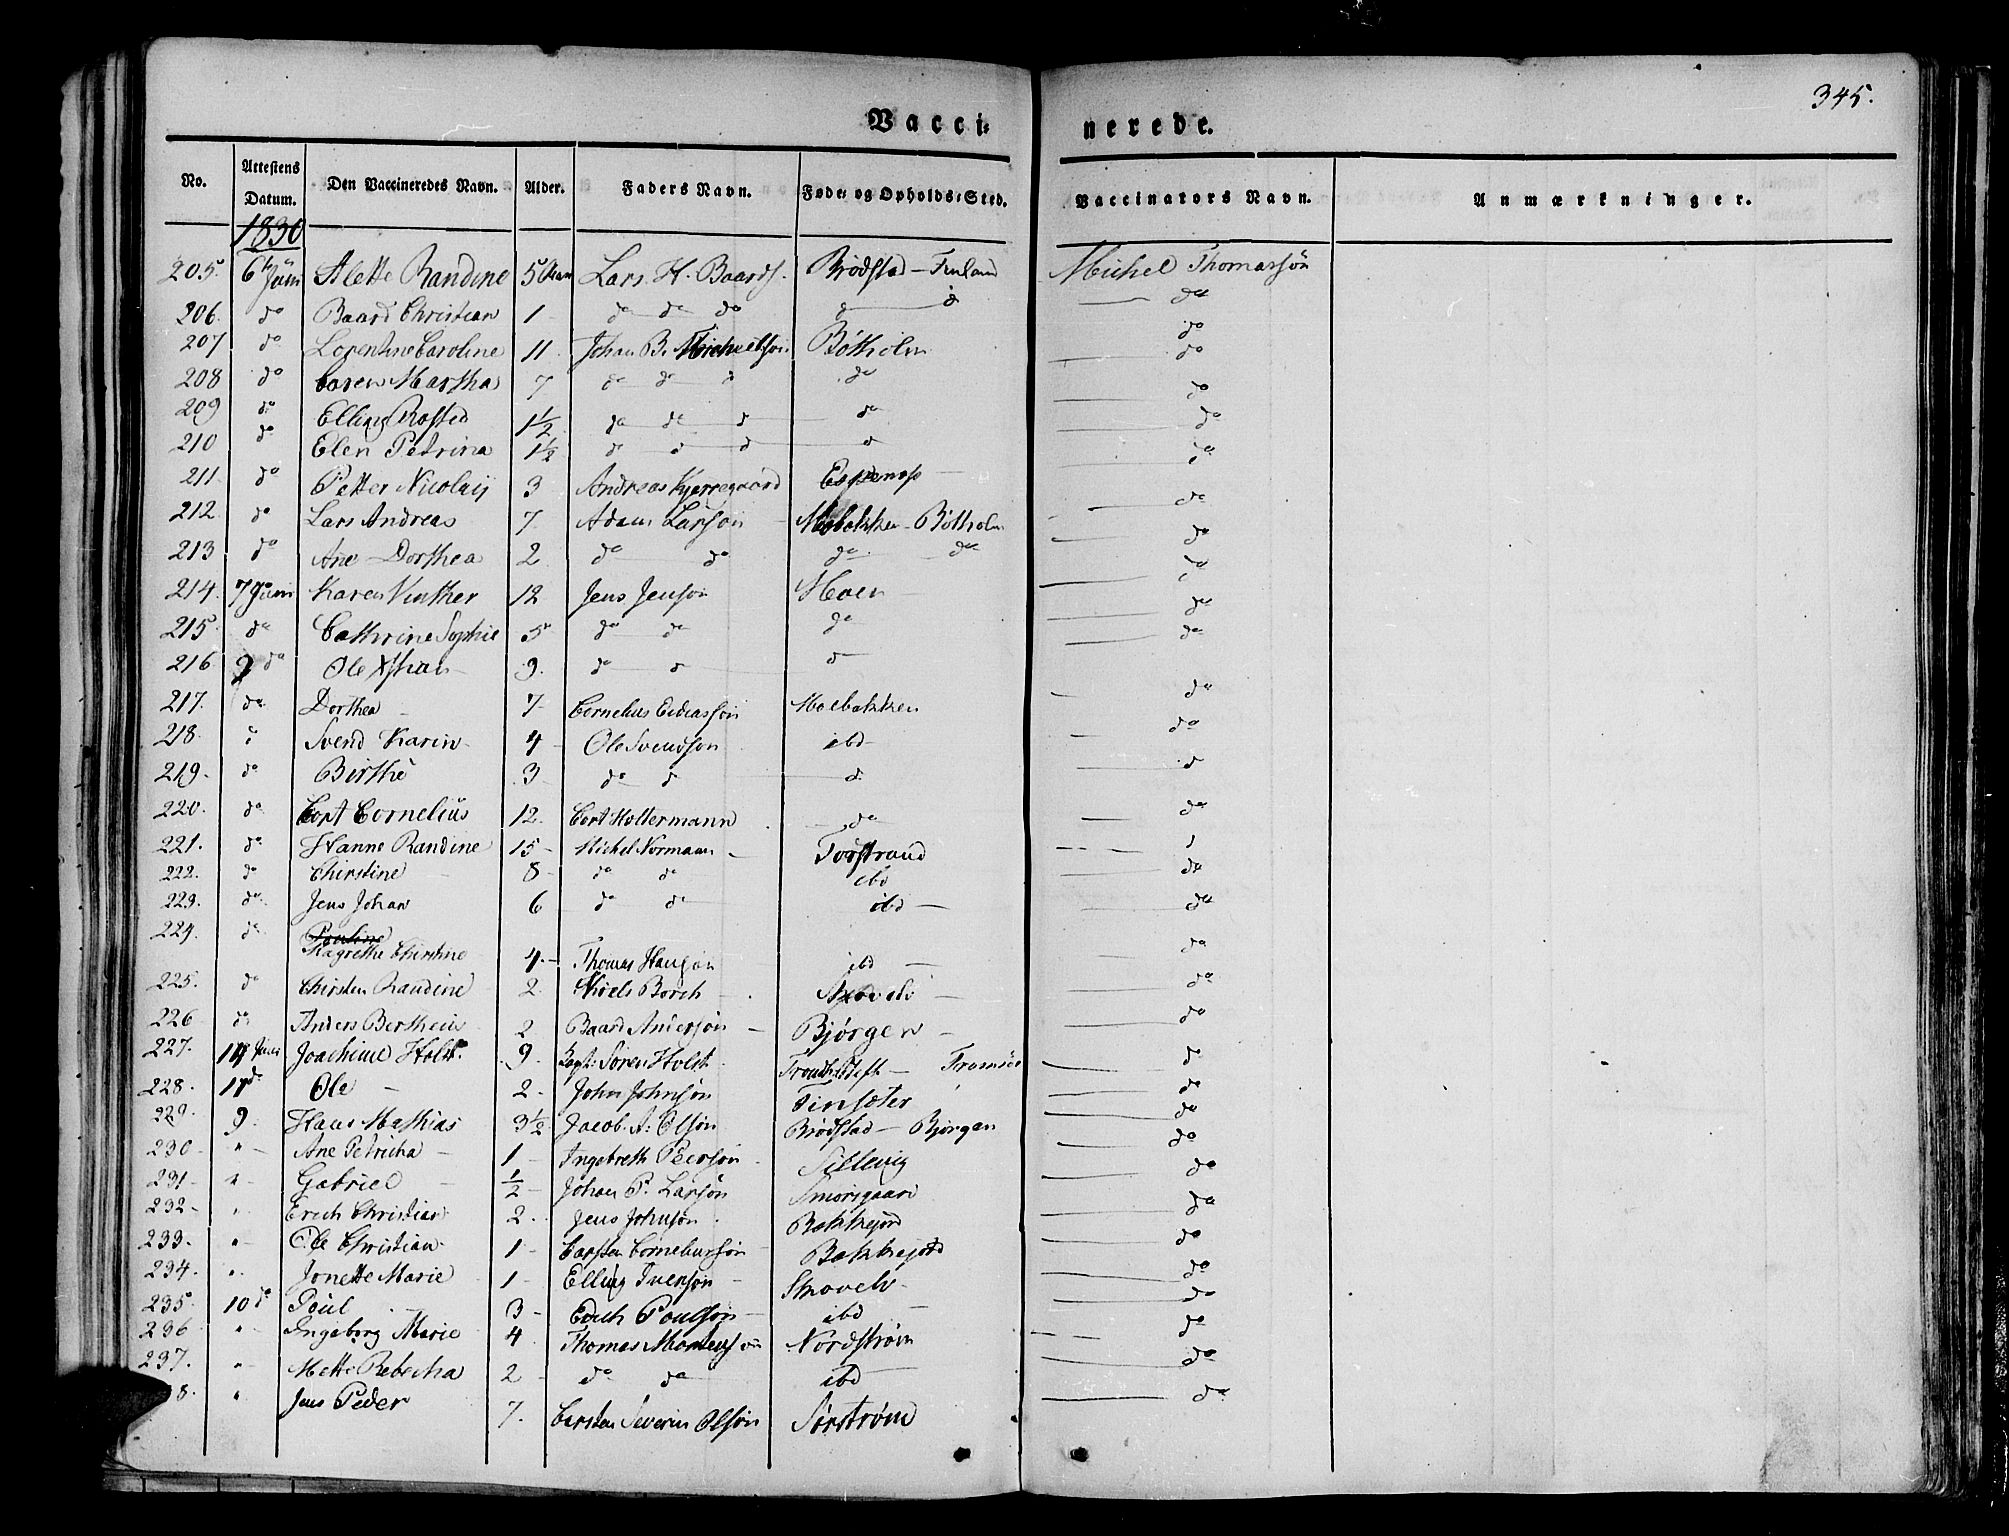 345.
Vacci: nerede.
No. Attestens Datum. Den Vaccineredes Navn. Alder. Faders Navn. Føde- og Opholds-Sted. Vaccinators Navn. Anmærkninger.
1830
205. 6te Juni Alette Randine 5 Lars H. Baards. Brødstad - Michel Thomassøn
206. do Baard Christian 1 - do do do d d do
207 do Lorentine Caroline 11. Johan B. Michaelsøn Bøtholm do
208 do Caren Martha 7 do do d do do
209 do Elling Rosted 1 1/2 do do d do do
210 do Elen Petrina 1 1/2 d d d d do
211 do Petter Nicolaij 3 Andreas Kjerregaard Espenop do
212. do Lars Andreas 7. Adam Larsøn Moebakken - Bøtholm do
213 do Ane Dorthea 2 do do do do do
214. 7 Juni Karen Vinther 12 Jens Jensøn Moen do
215. do Cathrine Sophie 5 do do do do
216 9 do Ole 9. do d d do
217. do Dorthea 7- Cornelius Moebakken do
218. d Svend Karin 4 - Ole Svendsøn ibd do
219. do Birthe 3 - do d d d
220. do Cort Cornelius 12. Cort Holtermann do do
221. do Hanne Randine 15 - Michel Normann Torstrand d
222. do Chirstine 8 - do do ibd do
223. do Jens Johan 6 do do ibd - do
224. do Pauline
Magrethe Chirstine 4. - Thomas Hansøn ibd do
225. do Chirsten Randine 2. Niels Borch do
226 do Anders Bertheus 2 Baard Andersøn Bjørgen - do
227. 14 Juni Joachime Holst. 9. Søren Holst - Tromsøe d
228. 11 d. Ole - 2. John Johnsøn Finsæter do
229. 9. Hans Mathias 3 1/2 Jacob. A. Olsøn Brødstad - Bjørgen do
230 " - Ane Petricha 1 - Ingebreth Peersøn Sillevig do
231 - " - Gabriel 1/2 - Johan P. Larsøn Smørsgaard do
232 - " Erich Christian 2. Jens Johnsøn Bakkejord do
233. " - Ole Christian 1 - Carsten Corneliussøn Bakkejord do
234. " . Jonette Marie 1 - Elling Iversøn Skovelv do
235. 10 d Poul 3 - Erich Poulsøn ibd - do
236 " - Ingeborg Marie 4 Thomas Mortensøn Nordstrøm do
237. " - Mette Rebecha 2 - do do ibd do
8. " Jens Peder 7. Carsten Severin Olsøn Sørstrøm do